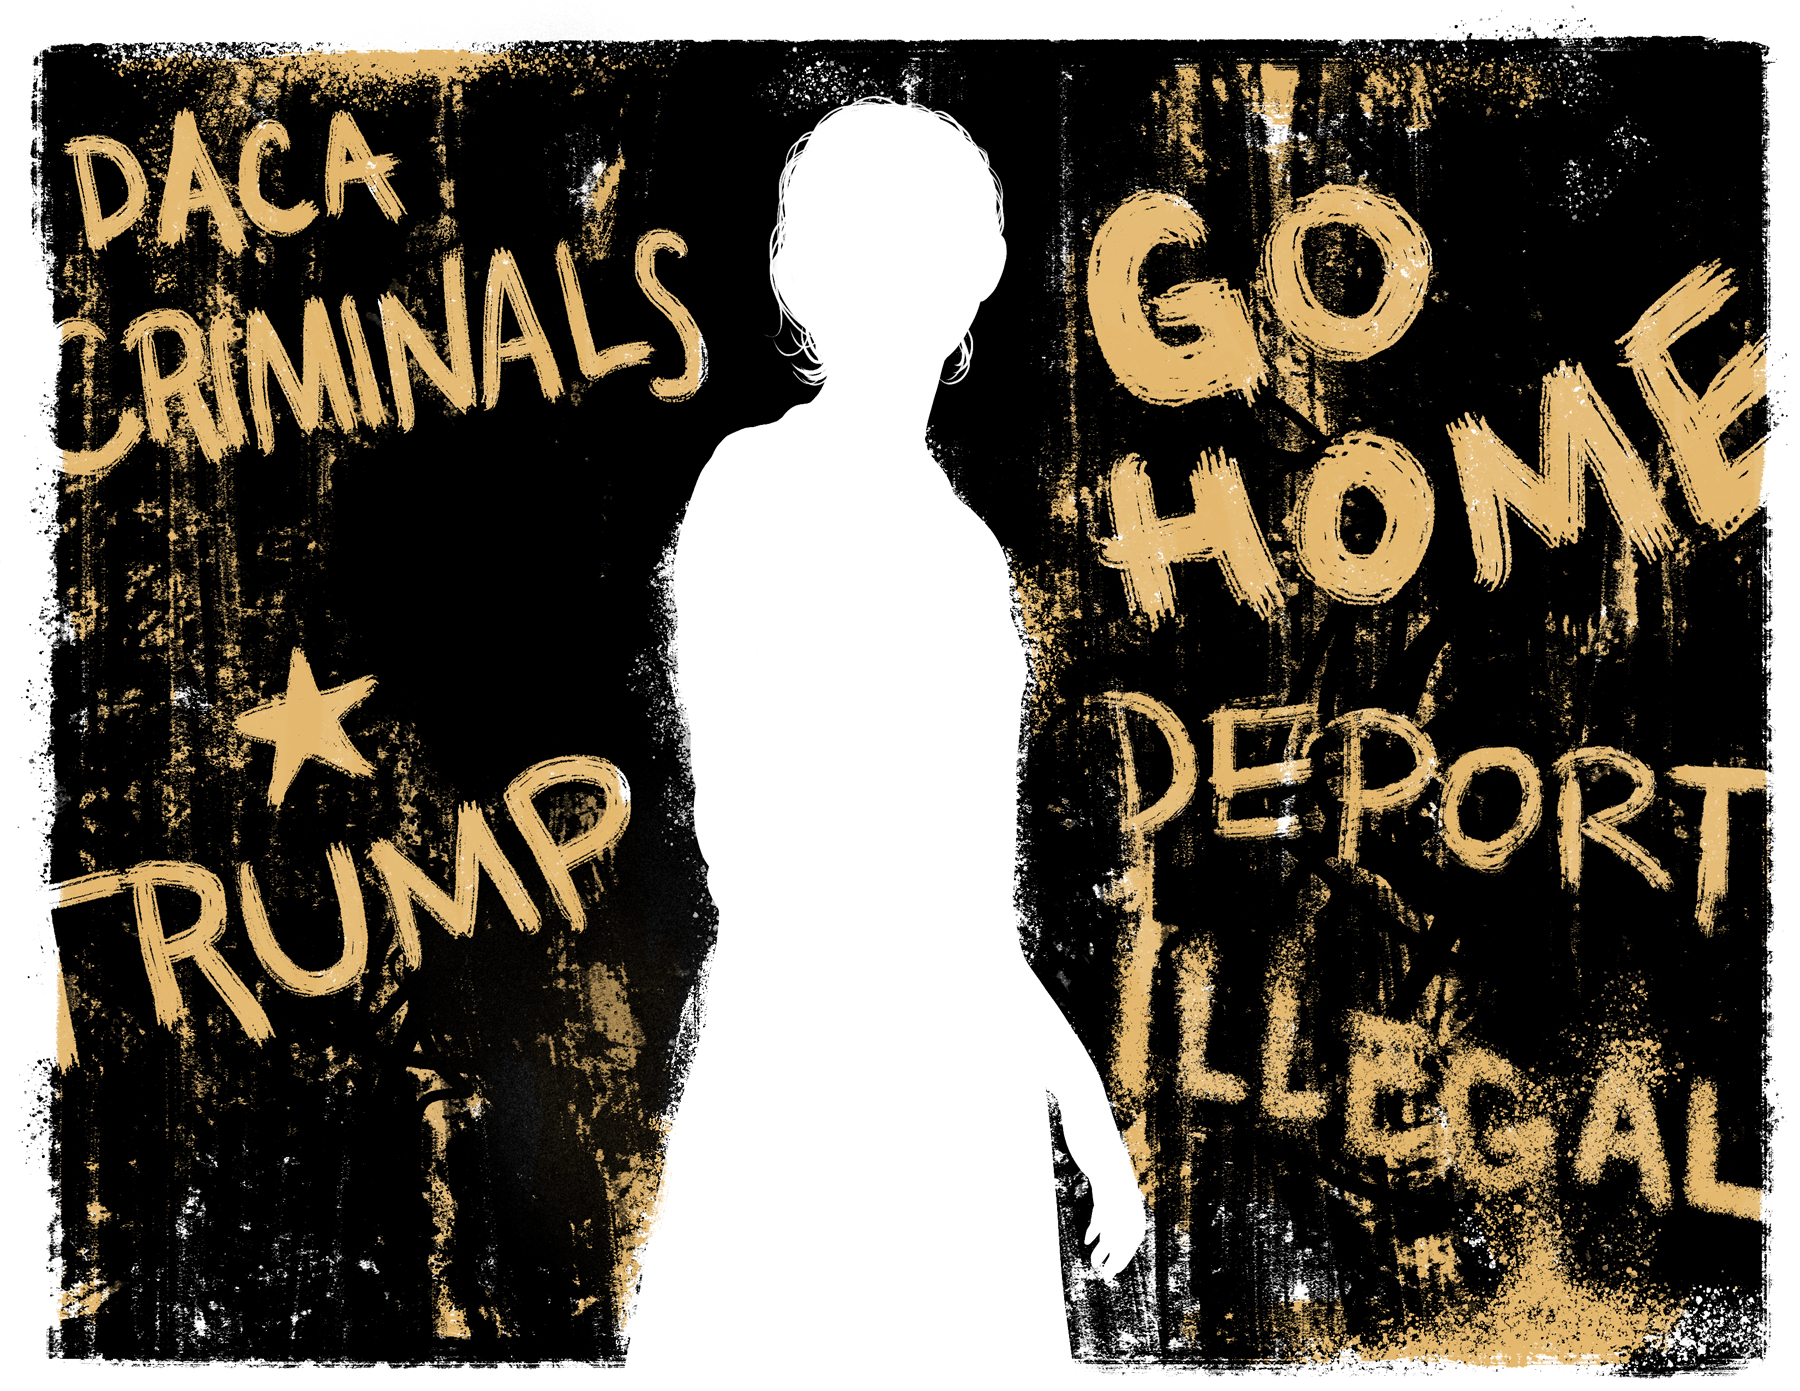 DACA
CRIMINALS
TRUMP
GO
HOME
DEPORT
ILLEGAL